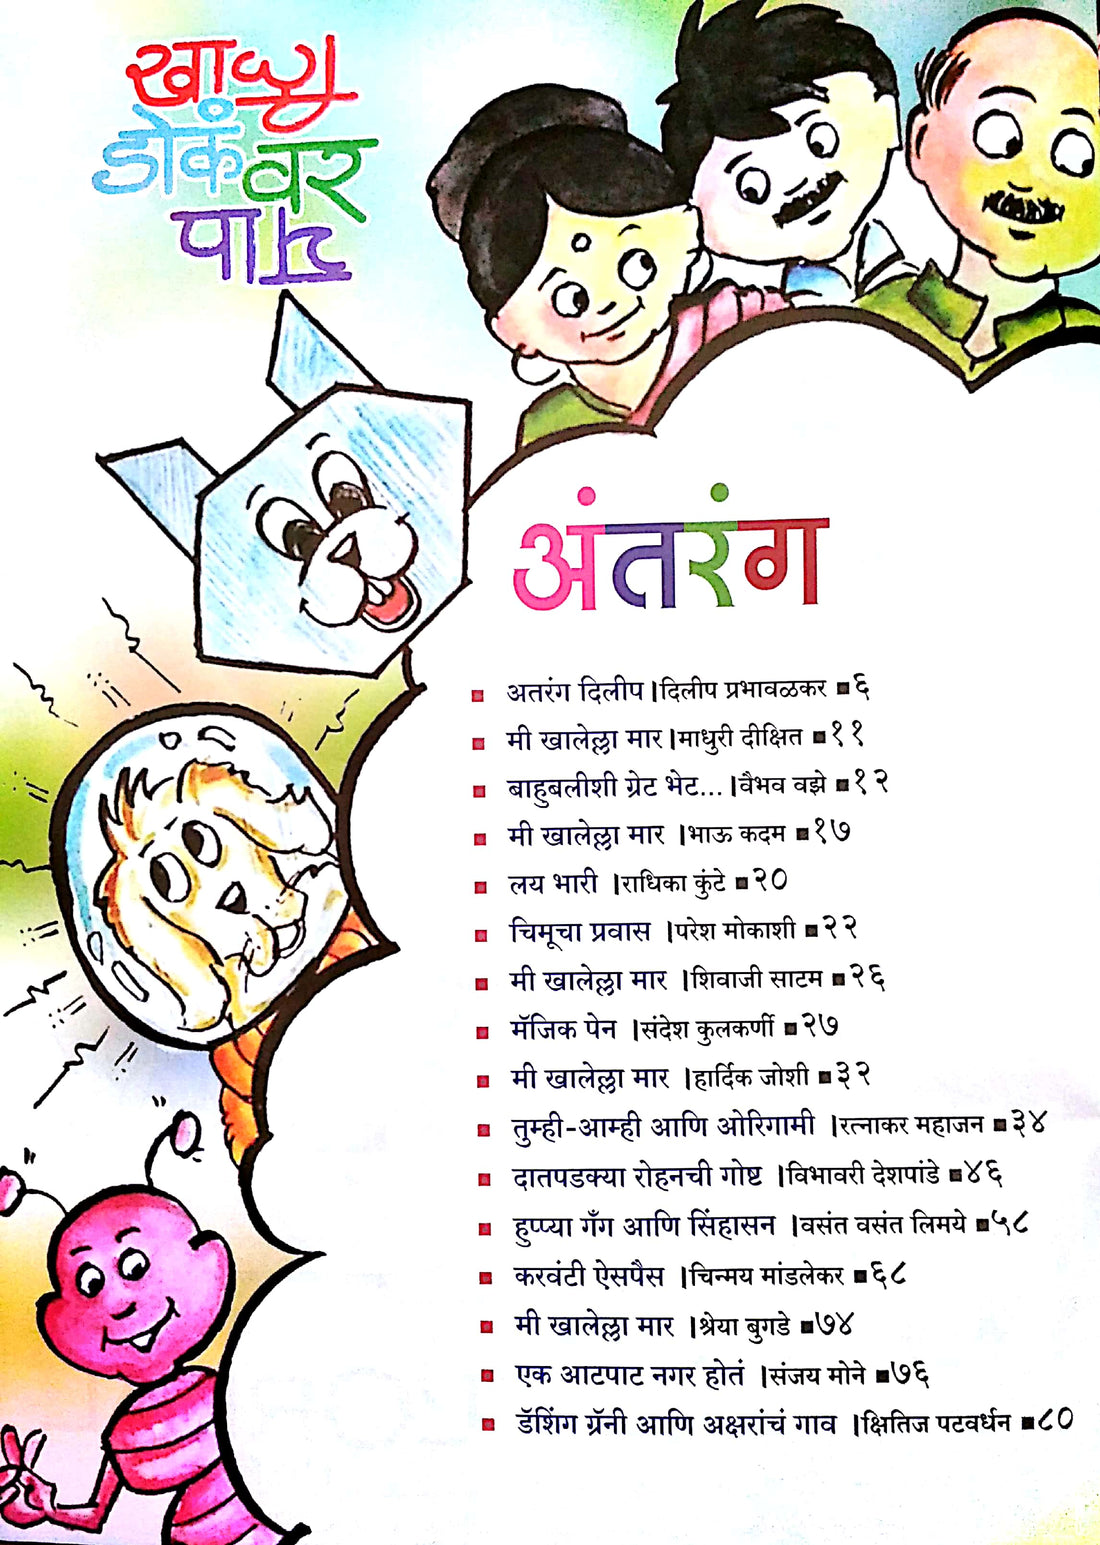 खाली
डोकं वर
पाय
अंतरंग
▪ अतरंग दिलीप।दिलीप प्रभावळकर ▪६
▪ मी खालेल्ला मार।माधुरी दीक्षित ▪११
▪ बाहुबलीशी ग्रेट भेट...।वैभव वझे ▪१२
▪ मी खालेल्ला मार ।भाऊ कदम ▪१७
▪ लय भारी ।राधिका कुंटे ▪२०
▪ चिमूचा प्रवास ।परेश मोकाशी ▪२२
▪ मी खालेल्ला मार ।शिवाजी साटम ▪२६
▪ मॅजिक पेन ।संदेश कुलकर्णी ▪२७
▪ मी खालेल्ला मार ।हार्दिक जोशी ▪३२
▪ तुम्ही-आम्ही आणि ओरिगामी ।रत्नाकर महाजन ▪३४
▪ दातपडक्या रोहनची गोष्ट ।विभावरी देशपांडे ▪४६
▪ हुप्प्या गँग आणि सिंहासन ।वसंत वसंत लिमये ▪५८
▪ करवंटी ऐसपैस ।चिन्मय मांडलेकर ▪६८
▪ मी खालेल्ला मार ।श्रेया बुगडे ▪७४
▪ एक आटपाट नगर होतं ।संजय मोने ▪७६
▪ डॅशिंग ग्रॅनी आणि अक्षरांचं गाव ।क्षितिज पटवर्धन ▪८०